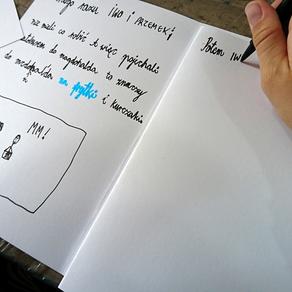 razu IWO I PRZEMEK;
nie mieli co robić t więc pojechali
do
to znaczy
do na frytki i kurczaki.
MM!
Potem IW